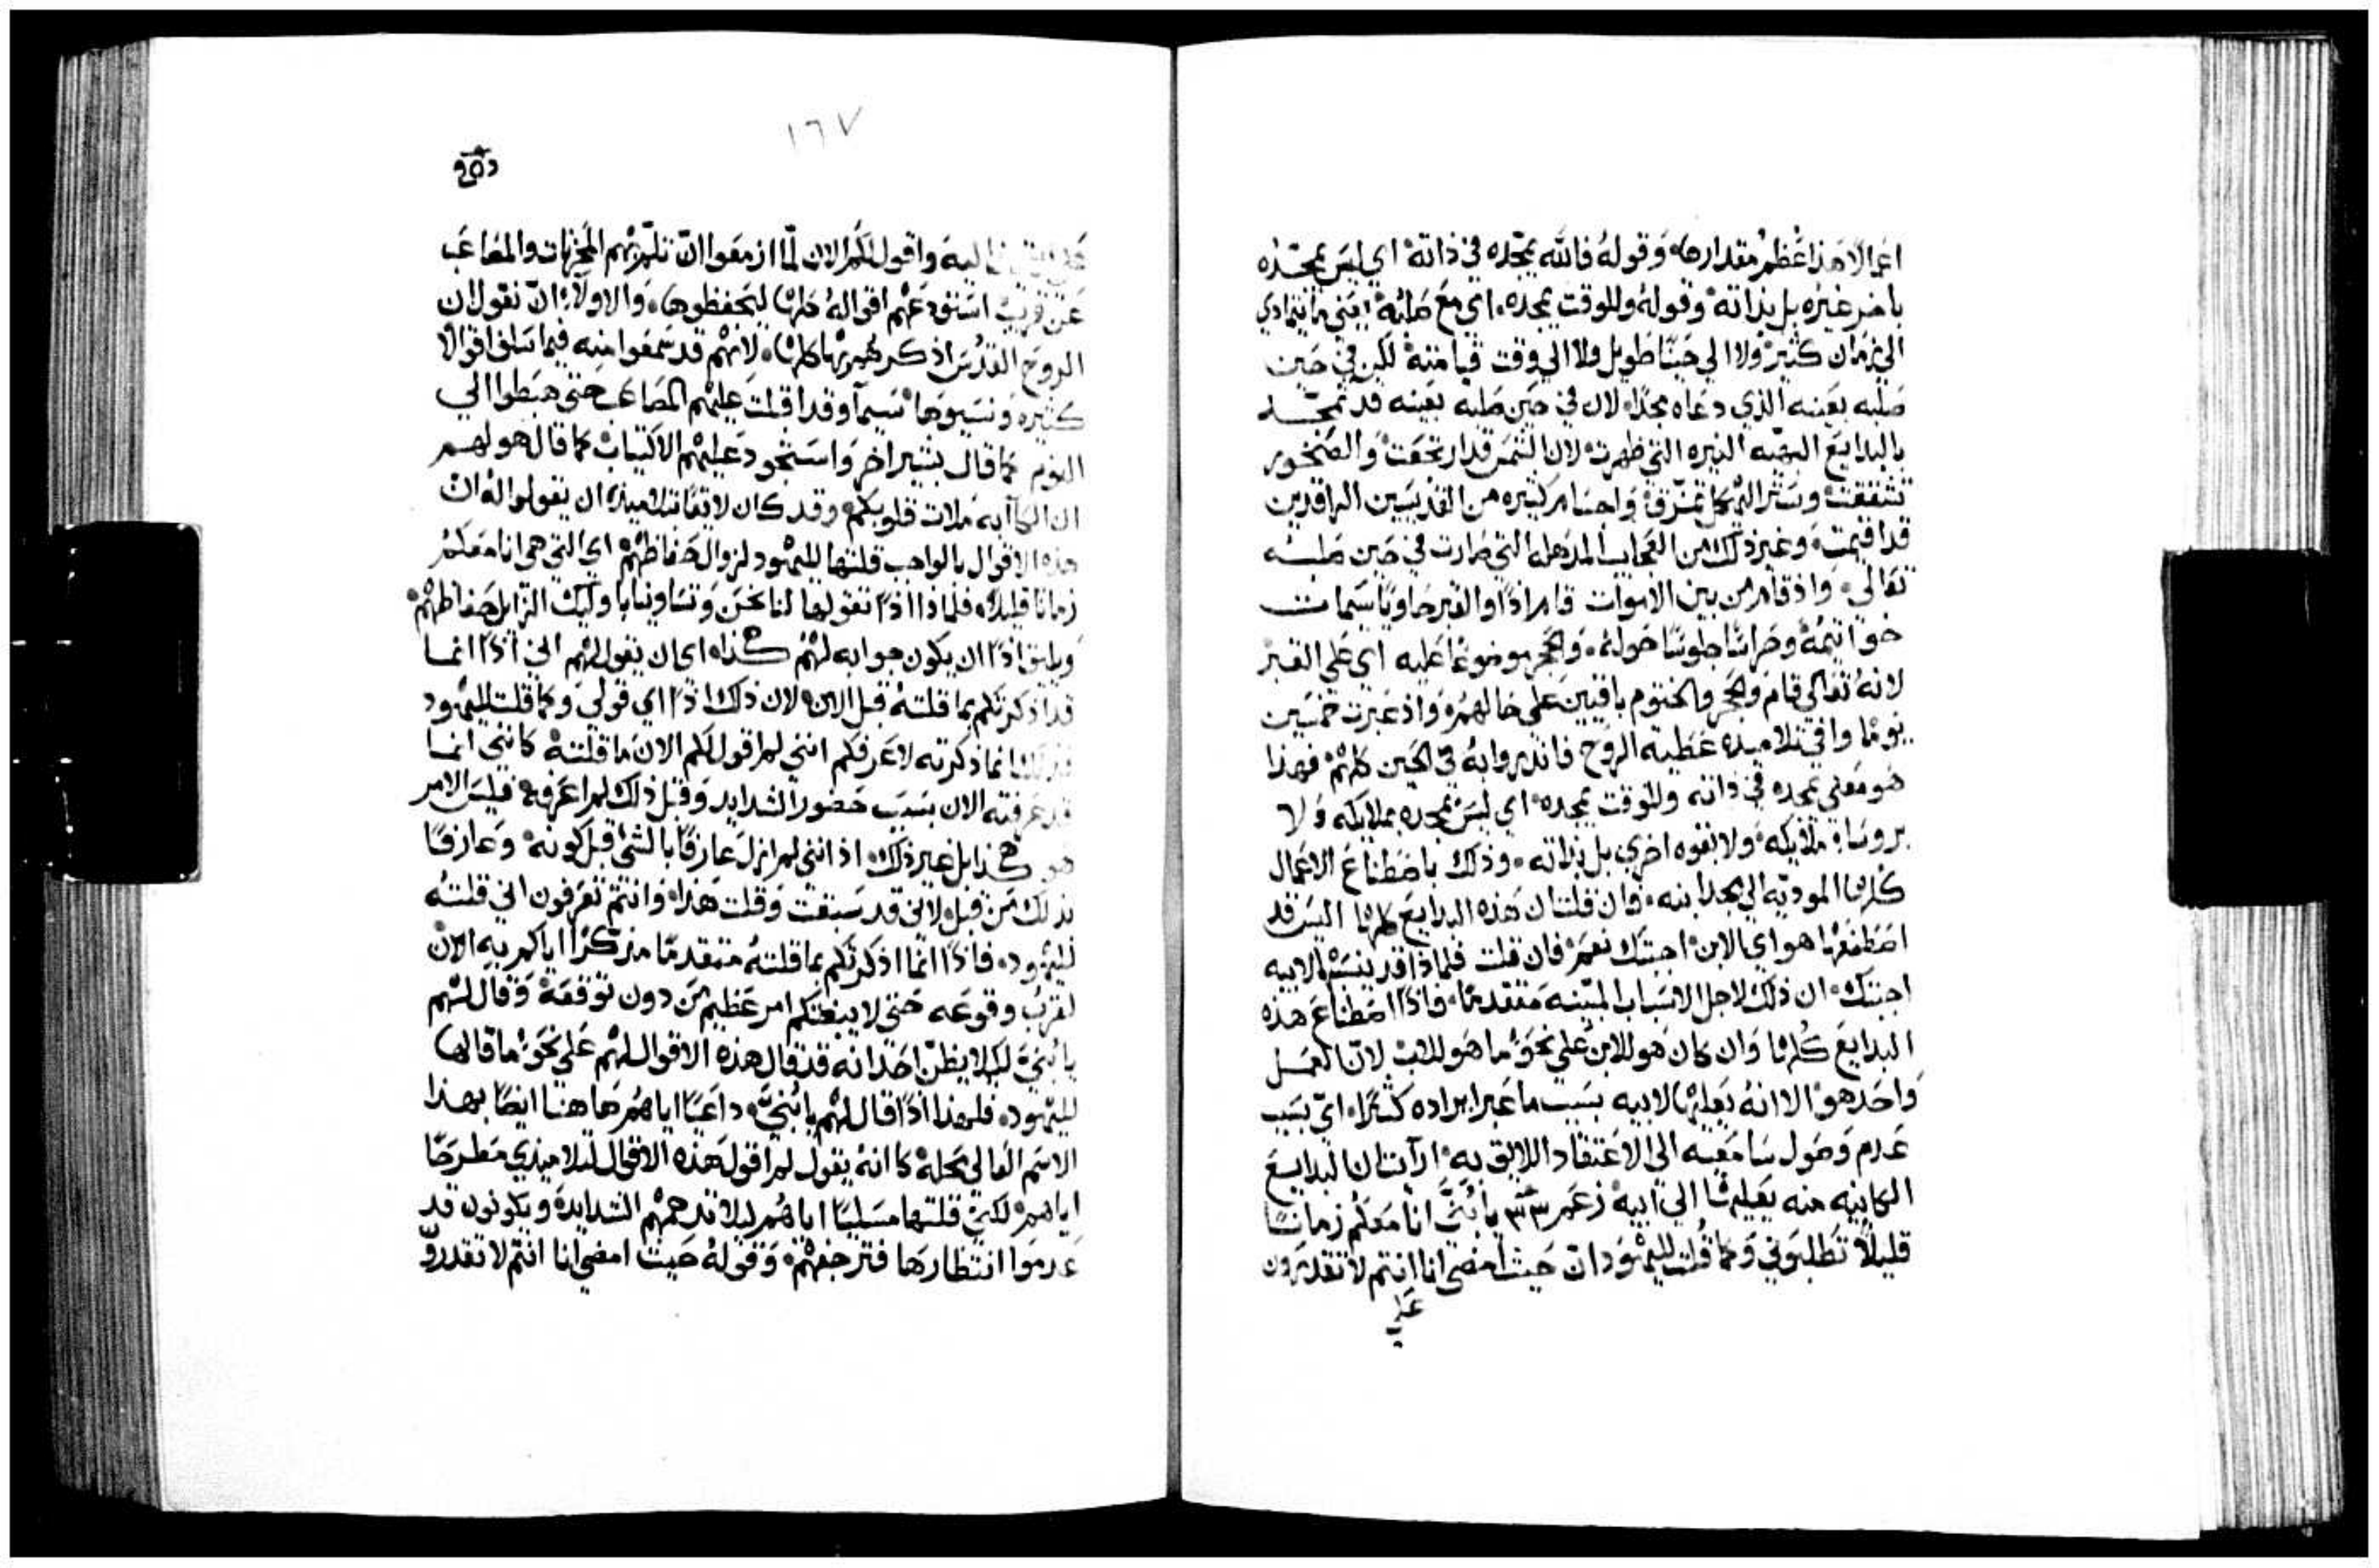 اعمالاً هذا عُظم مقدارها، وقوله فالله يمجّده في ذاته اي ليس يمجّده
بامر غيره بل بذاته وقوله وللوقت يمجده، اي مع صلبه يعني ما يتمادي
الي زمان كثير ولا الي حينًا طويل ولا الي وقت قيامته لكن في حين
صلبه بعينه الذي دعاه مجدًا، لان في حين صلبه بعينه قد تمجّد
بالبدايع البهيه النيره التي ظهرت لان الشمس قد ارتجفت والصخور
تشققت وستر الهيكل تمزّق واجسام كثيره من القديسين الراقدين
قد اقيمت، وغير ذلك من العجايب المذهله التي صارت في حين صلبه
تعالي، واذ قام من بين الاموات قام اذًا والقبر حاويًا سمات
خواتيمه وحراسًا جلوسًا حوله، والحجر موضوعًا عليه اي علي القبر
لانه تعالي قام والحجر والختوم باقيين علي حالهم، واذ عبرت خمسين
يومًا وافي تلاميذه عطية الروح فانذروا به في الحين كلهم فهذا
هو معني يمجده في ذاته وللوقت يمجده اي ليس يمجده بملايكه ولا
بروساء ملايكه ولا بقوه اخري بل بذاته، وذلك باصطناع الاعمال
كلها الموديه الي مجد ابنه، فان قلت ان هذه البدايع كلها اليس قد
اصطنعها هو اي الابن اجبتك نعم، فان قلت فلماذا قد ينسبها لابيه
اجبتك ان ذلك لاجل الاسباب المبيّنه متقدمًا، فاذًا اصطناع هذه
البدايع كلها وان كان هو للابن علي نحو ما هو للاب لانّ العمل
واحد هو الا انه يعليها لابيه بسبب ما عبر ايراده كثيرًا، اي بسبب
عدم وصول سامعيه الي الاعتقاد اللايق به ارآيت ان البدايع
الكاينه منه يعليها الي ابيه زعم ٣٣ يا بُنيَّ انا معكم زمانًا
قليلاً تطلبوني وكما قُلت لليهود ان حيث امضي انا انتم لا تقدرون
علي
١٦٧
اليه واقول لكم الان لمّا ازمعوا ان تلمّ بهم المحزنات والمصاعب
عن قريب استودعهم اقواله كلها ليحفظوها، والاولا ان نقول ان
الروح القدس اذكرهم بها كلها، لانهم قد سمعوا منه فيما سلف اقوالاً
كثيره ونسيوها سيما وقد اقبلت عليهم المصاعب حتي هبطوا الي
النوم كما قال بشير اخر واستحود عليهم الاكتياب كما قال هو لهم
ان الكآبه ملات قلوبكم وقد كان لايقًا بتلاميذه ان يقولوا له ان
هذه الاقوال بالواجب قلتها لليهود لزوال حفاظهم اي التي هي انا معكم
زمانًا قليلاً، فلماذا اذًا تقولها لنا نحن وتساوينا باوليك الزايل حفاظهم
ويليق اذًا ان يكون جوابه لهم كذا، اي ان يقول لهم اني اذًا انما
قد اذكرتكم بما قلته قبل الان لان ذلك اذًا اي قولي وكما قلت لليهود
انما ذكرته لاعرفكم انني لم اقول لكم الان ما قلته كانني انما
قد عرفته الان بسبب حضور الشدايد وقبل ذلك لم اعرفه فليس الامر
هو هكذا بل غير ذلك اذ انني لم ازل عارفًا بالشي قبل كونه وعارفًا
بذلك من قبل لاني قد سبقت وقلت هذا، وانتم تعرفون اني قلته
لليهود، فاذًا انما اذكرتكم بما قلته متقدمًا مذكرًا اياكم به الان
لقرب وقوعه حتي لا يبغتكم امر عظيم من دون توقعه وقال لهم
يا بُنيَّ لكيلا يظنّ احدًا انه قد قال هذه الاقوال لهم علي نحو ما قالها
لليهود، فلهذا اذًا قال لهم يا بُنيَّ، داعيًا اياهم هاهنا ايضًا بهذا
الاسم العالي محله كانه يقول لم اقول هذه الاقوال لتلاميذي مطرحًا
اياهم، لكني قلتها مسليًا اياهم ليلا تدهمهم الشدايد، ويكونون قد
عدموا انتظارها فتزعجهم، وقوله حيث امضي انا انتم لا تقدرو